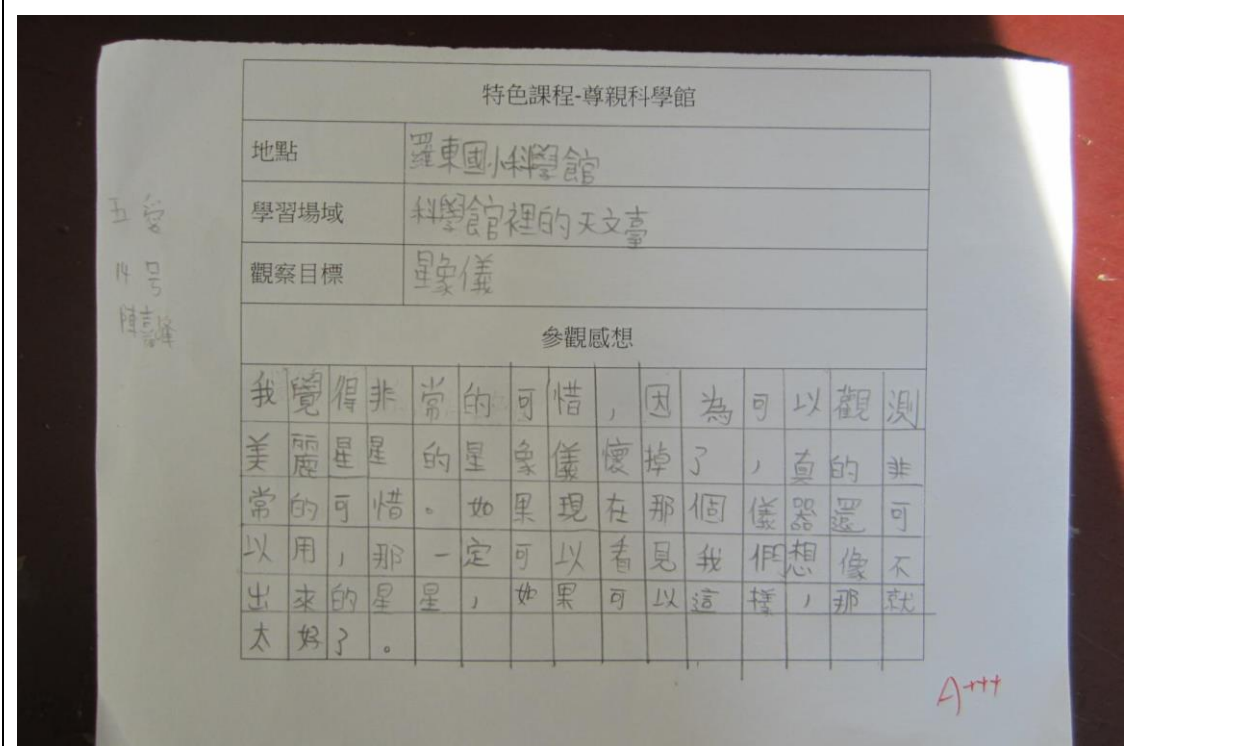 特色課程-尊親科學館
地點 羅東國小科學館
學習場域 科學館裡的天文臺
觀察目標 星象儀
五愛
14号
陳
參觀感想
我覺得非常的可惜,因為可以觀測
美麗星星的星象儀懷掉了,真的非
常的可惜。如果現在那個儀器還可
以用,那一定可以看見我們想像不
出來的星星,如果可以這樣,那就
太好了。
A+++